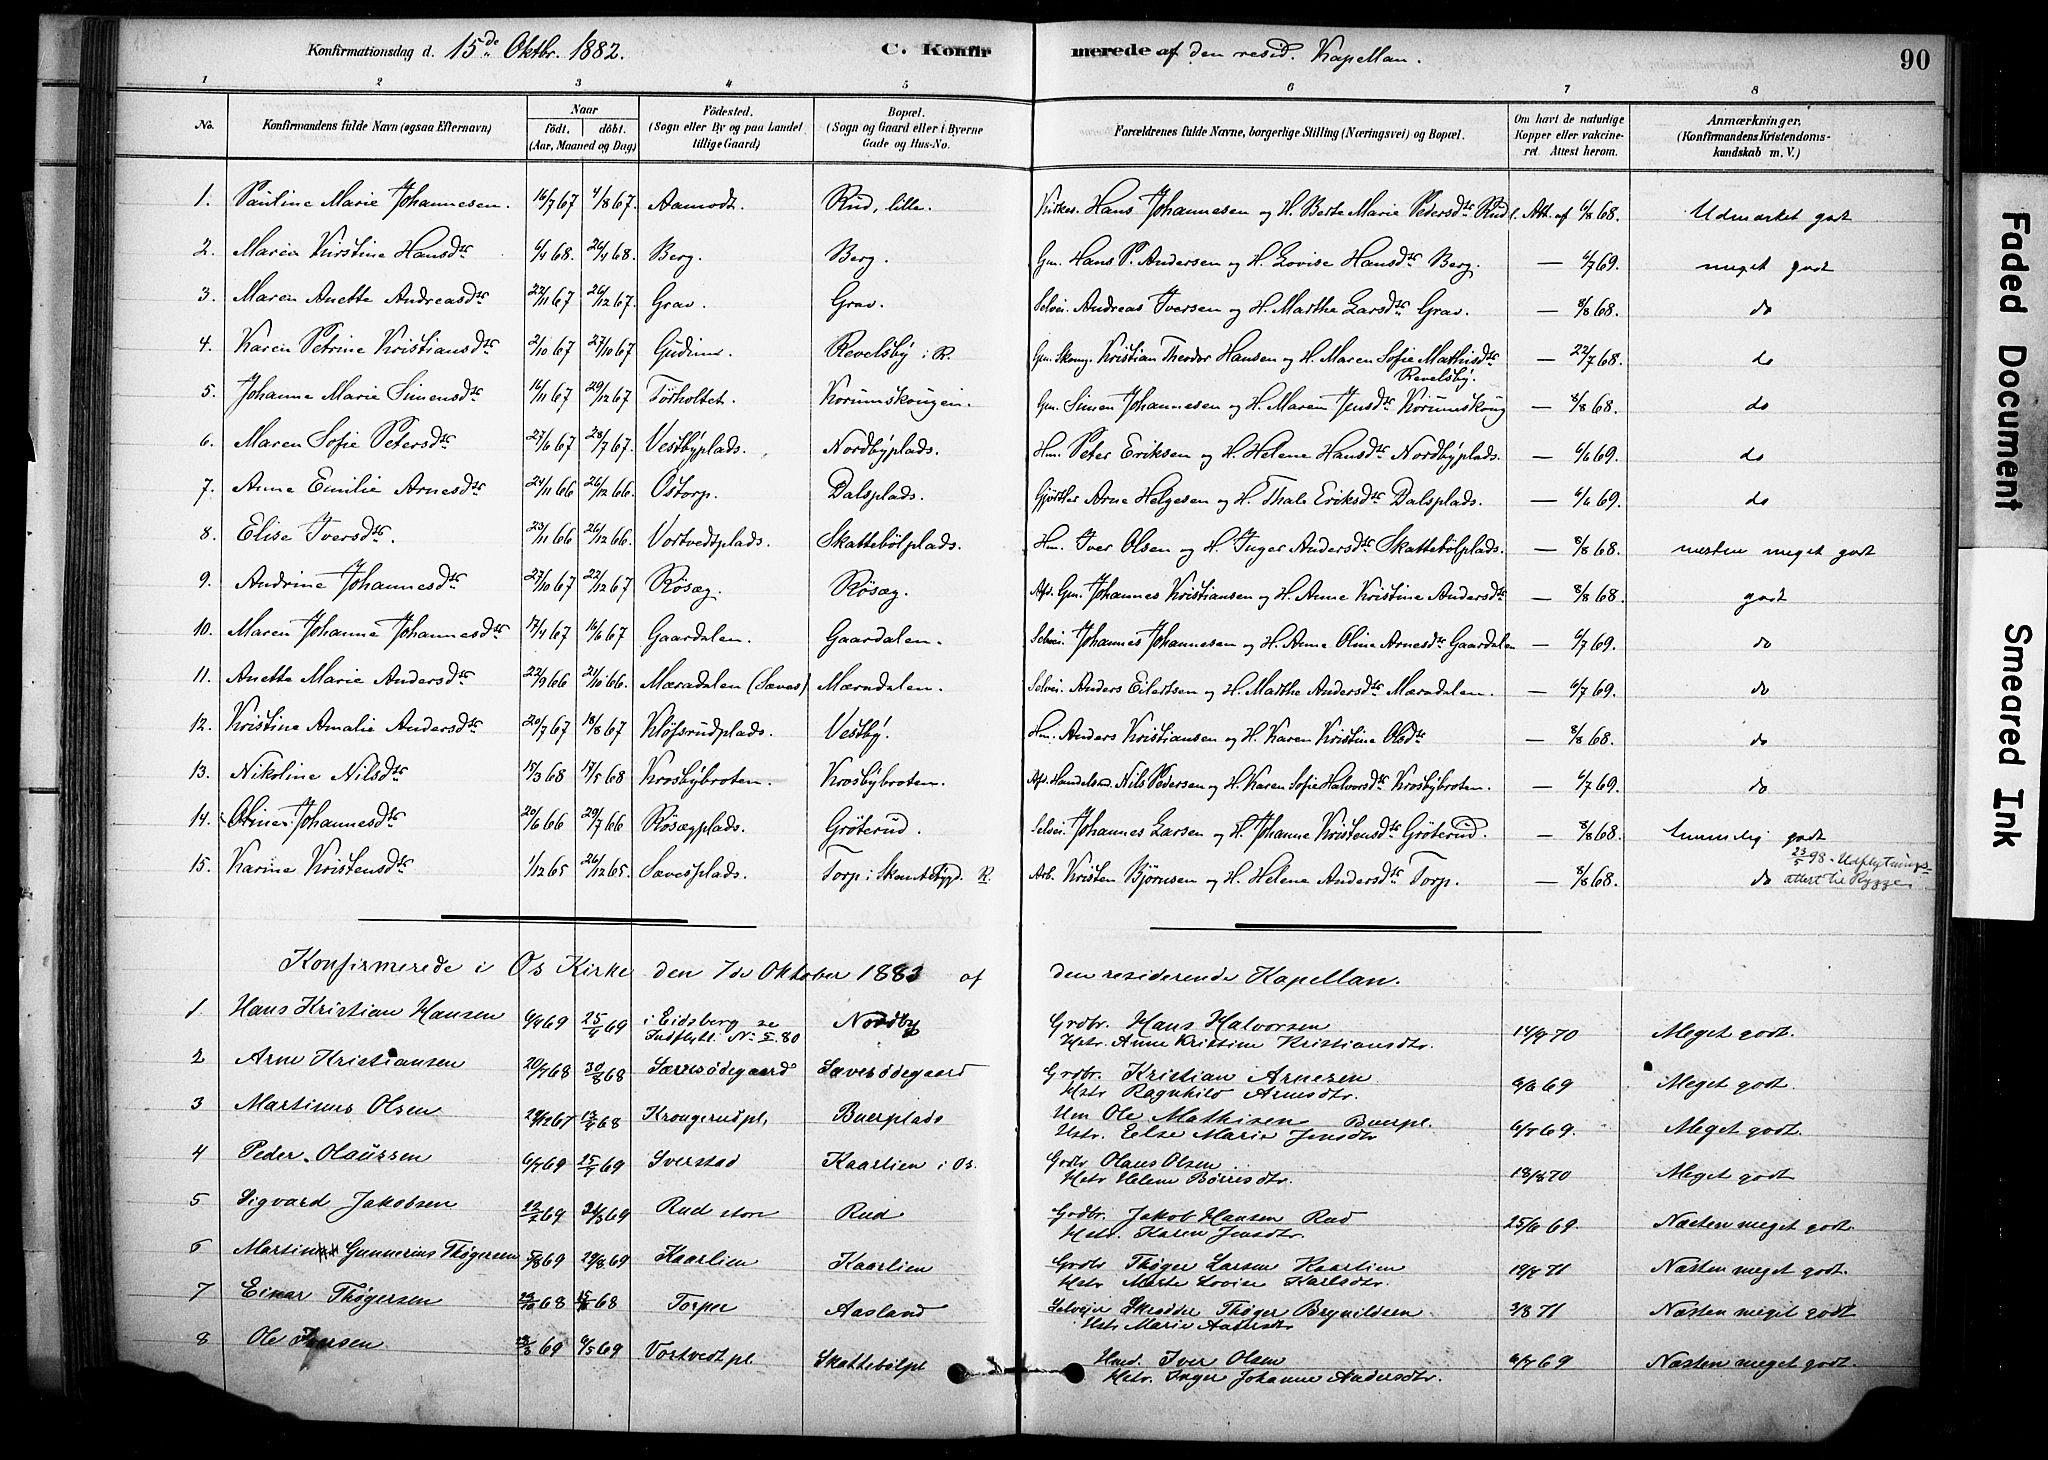 Konfirmationsdag d. 15de Oktbr. 1882. C. Konfirmerede af den resid. Kapellan. 90
1 2 3 4 5 6 7 8
No. Konfirmandens fulde Navn (ogsaa Efternavn) Naar födt. döbt. (Aar, Maaned og Dag) Födested. (Sogn eller By og paa Landet tillige Gaard) Bopæl. (Sogn og Gaard eller i Byerne Gade og Hus-No. Forældrenes fulde Navne, borgerlige Stilling (Næringsvei) og Bopæl. Om havt de naturlige Kopper eller vakcineret. Attest herom. Anmærkninger, (Konfirmandens Kristendomskundskab m. V.)
1. Pauline Marie Johannesen. 16/7 67 4/8 67. Aamodt. Rud, lille. Kirkes. Hans Johannesen og H. Berte Marie Pedersdtr Rud l. Att. af 6/8 68. Udmærket godt
2. Maren Kirstine Hansdtr 6/4 68. 26/4 68. Berg. Berg. Gm. Hans P. Andersen og H. Lovise Hansdtr Berg. — 6/7 69. meget godt
3. Maren Anette Andreasdtr 22/11 67 26/12 67. Grav. Grav. Selvei. Andreas Iversen og H. Marthe Larsdtr Grav. — 8/8 68. do
4. Karen Petrine Kristiansdtr 2/10 67 27/10 67. Gudim. Revelsby i R. Gm. Skomg. Kristian Theodor Hansen og H. Maren Sofie Mathisdtr Revelsby. — 22/7 68. do
5. Johanne Marie Simensdtr 16/11 67 29/12 67. Torholtet. Korumskougen. Gm. Simen Johannesen og H. Maren Jensdtr Korumskoug — 8/8 68. do
6. Maren Sofie Petersdtr 27/6 67 28/7 67. Vestbyplads. Nordbyplads. Hm. Peter Eriksen og H. Helene Hansdtr Nordbyplads. — 6/6 69. do
7. Anne Emilie Arnesdtr 24/11 66 26/12 66. Ostorp. Dalsplads. Gjørtler Arne Helgesen og H. Thale Eriksdtr Dalsplads. — 6/6 69. do
8. Elise Iversdtr. 23/11 66 26/12 66. Vortvedtplads. Skattebølplads. Hm. Iver Olsen og H. Inger Andersdtr Skattebølplads. — 8/8 68. næsten meget godt
9. Andrine Johannesdtr 27/10 67 22/12 67. Røsæg. Røsæg. Afd. Gm. Johannes Kristiansen og H. Anne Kristine Andersdtr — 8/8 68. godt
10. Maren Johanne Johannesdtr 17/4 67 16/6 67 Gaardalen. Gaardalen. Selvei. Johannes Johannesen og H. Anne Oline Arnesdtr Gaardalen — 6/7 69. do
11. Anette Marie Andersdtr 22/9 66 21/10 66. Mæradalen (Sæves) Mæradalen. Selvei. Anders Eilertsen og H. Marthe Andersdtr Mæradalen. — 6/7 69. do
12. Kristine Amalie Andersdtr 20/7 67 18/8 67 Kløfsrudplads. Vestby. Hm. Anders Kristiansen og H. Karen Kristine Olsdtr — 8/8 68. do
13. Nikoline Nilsdtr 15/3 68 17/5 68 Krosbybroten. Krosbybroten. Afd. Handelsmd. Nils Pedersen og H. Karen Sofie Halvorsdtr Krosbybroten. — 6/7 69. do
14. Oline Johannesdtr 20/6 66 29/7 66 Røsægplads. Grøterud. Selvei. Johannes Larsen og H. Johanne Kristensdtr Grøterud. — 8/8 68. temmelig godt
15. Karine Kristensdtr 1/12 65 26/12 65. Sævesplads. Torp i Skantebygd. R. Arb. Kristen Bjørnsen og H. Helene Andersdtr Torp. — 8/8 68. do 23/5 98. Udflytnings- attest til Rygge.
Konfirmerede i Os Kirke den 7de Oktober 1883 af den residerende Kapellan.
1 Hans Kristian Hansen 6/4 69 25/4 69 i Eidsberg se Indflyt. No 5. 80 Nordby Grdbr. Hans Halvorsen Hstr. Anne Kristine Kristiansdtr. 14/9 70 Meget godt.
2 Arne Kristiansen 20/7 68 30/8 68 Sævesødegaard Sævesødegaard Grdbr. Kristian Arnesen Hstr Ragnhild Arnesdtr. 6/6 69 Meget godt.
3 Martinus Olsen 29/12 67 13/4 68 Krougerudpl. Buerplads Hm Ole Mathisen Buerpl. Hstr. Else Marie Jensdtr 6/7 69. Meget godt.
4 Peder Olaussen 6/7 69 25/7 69 Sverstad Kaarlien i Os. Grdbr Olaus Olsen Hstr Helene Børresdtr. 18/8 70 Meget godt
5 Sigvard Jakobsen 22/2 69 21/3 69 Rud store Rud Grdbr. Jakob Hansen Rud Hstr. Karen Jensdtr. 25/6 69 Næsten meget godt.
6 Martin Gunnerius Thøgersen 5/8 69 29/8 69 Kaarlien Kaarlien Grdbr Thøger Larsen Kaarlien Hstr Marte Lovise Karlsdtr. 19/8 71 Næsten meget godt.
7 Einar Thøgersen 68 68 Torper Aasland Selveier Skrædder Thøger Brynildsen Hstr Marie 3/8 71 Næsten meget godt
8 Ole Iversen 69 6/5 69 Vortvedtpl Skattebølpl Hmd. Iver Olsen Hstr. Inger Johanne Andersdtr. 6/7 69 Næsten meget godt.
Faded Document
Smeared Ink